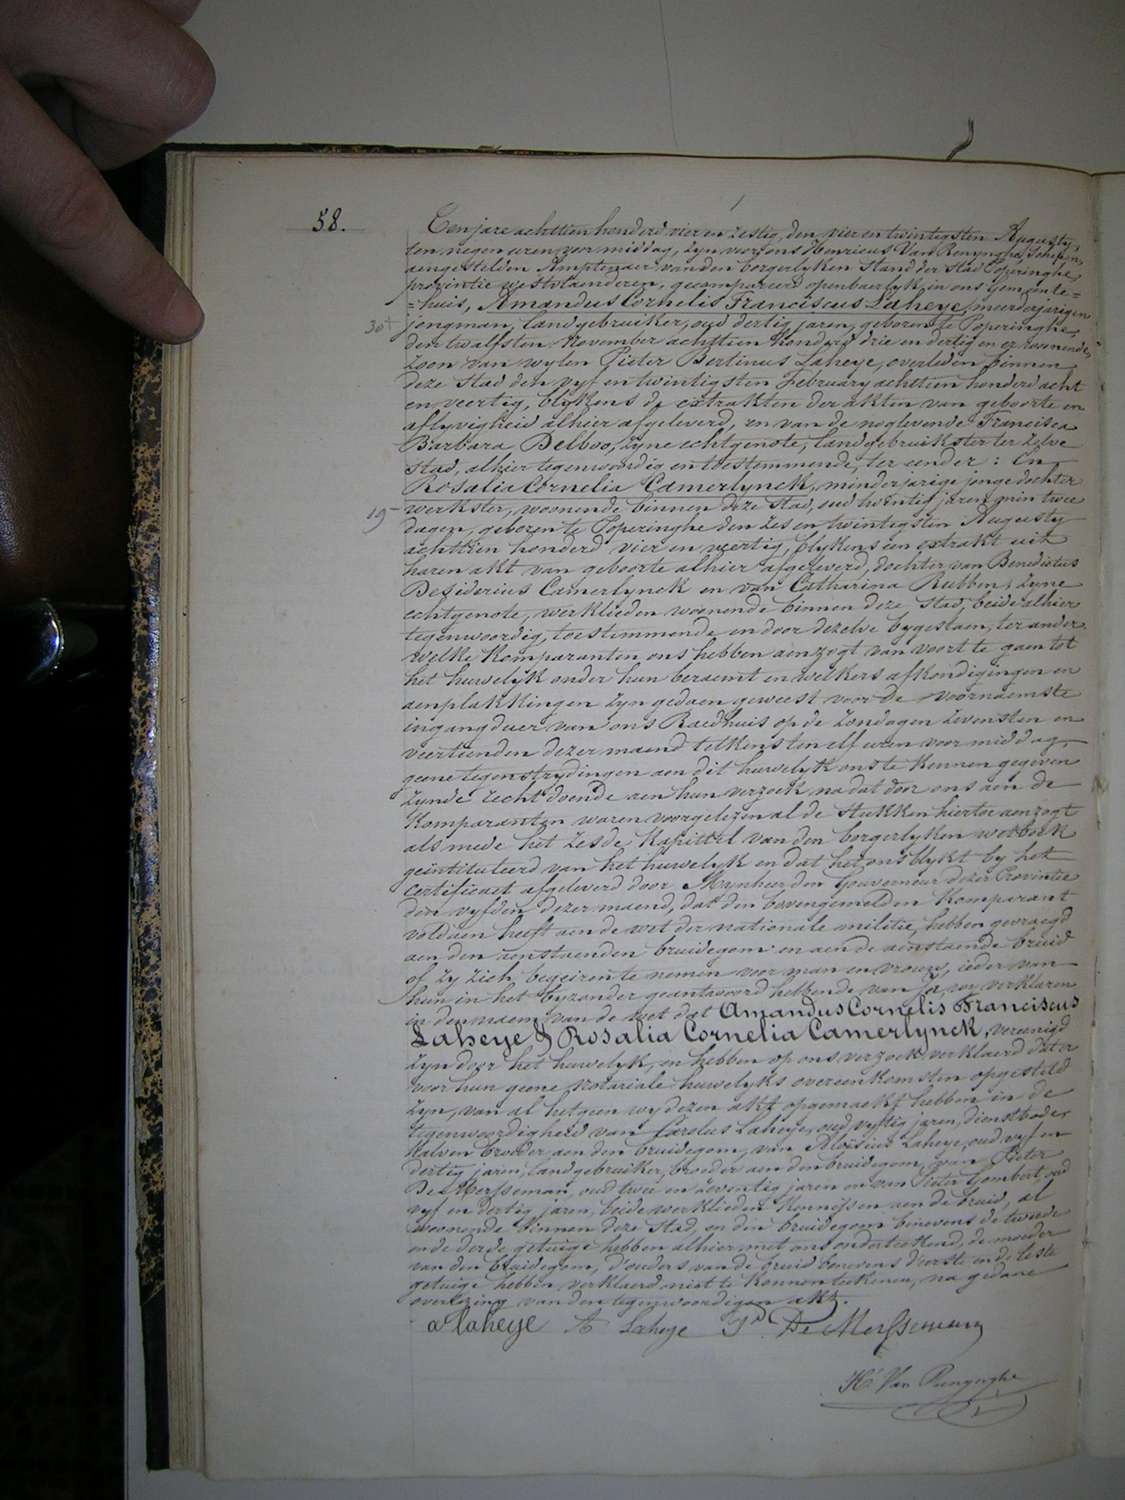 58.
Een jare achttien honderd vier en zestig, den vier en twintigsten Augusty,
ten negen uren voor middag, zyn voor ons Henricus Van Renynghe, Schepen,
aengestelden Amptenaer van den borgerlyken Stand der Stad Poperinghe,
provintie westvlaenderen, gecompareerd openbaerlyk in ons Gemeente=
=huis, Amandus Cornelis Franciscus Laheye, meerderjarigen
30+ jongman, landgebruiker, oud dertig jaren, geboren te Poperinghe,
den twalfsten November achttien honderd drie en dertig en er woonende,
Zoon van wylen Pieter Bertinus Laheye, overleden binnen
deze Stad den vyf en twintigsten February achttien honderd acht
en veertig, blykens de extrakten der akten van geboorte en
aflyvigheid alhier afgeleverd, en van de noglevende Francisca
Barbara Delboo, zyne echtgenote, landgebruikster ter zelve
stad, alhier tegenwoordig en toestemmende, ter eender: En
Rosalia Cornelia Camerlynck, minderjarige jonge dochter
19- werkster, woonende binnen deze stad, oud twintig jaren min twee
dagen, geboren te Poperinghe den zes en twintigsten Augusty
achttien honderd vier en veertig, blykens een extrakt uit
haren akt van geboorte alhier afgeleverd, dochter van Benedictus
Desiderius Camerlynck en van Catharina Rubben, zyne
echtgenote, werklieden woenende binnen deze stad, beide alhier
tegenwoordig, toestemmende en door dezelve bygestaen, ter ander.
Welke Komparanten ons hebben aenzogt van voort te gaen tot
het huwelyk onder hun beraemt en welkers afkondigingen en
aenplakkingen zyn gedaen geweest voor de voornaemste
ingangdeur van ons Raedhuis op de zondagen zevensten en
veertienden dezer maend telkens ten elf uren voor middag,
geene tegenstrydingen aen dit huwelyk ons te kennen gegeven
zynde recht doende aen hun verzoek, na dat door ons aen de
Komparanten waren voorgelezen al de stukken hiertoe aenzogt
als mede het zesde Kapittel van den borgerlyken wetboek
geïntituleerd van het huwelyk en dat het ons blykt by het
Certificaet afgeleverd door Mynheer den Gouverneur dezer Provintie
den vyfden dezer maend, dat den bovengemelden Komparant
voldaen heeft aen de wet der nationale militie, hebben gevraegd
aen den aenstaenden bruidegom en aen de aenstaende bruid
of zy zich begeiren te nemen voor man en vrouw, ieder van
hun in het byzonder geantwoord hebbende van ja, wy verklaren
in den naem van de wet dat Amandus Cornelis Franciscus
Laheye & Rosalia Cornelia Camerlynck, vereenigd
zyn door het huwelyk, en hebben op ons verzoek verklaerd dat er
voor hun geene Notariale huwelyks overeenkomsten opgesteld
zyn, van al hetgeen wy dezen akt opgemaekt hebben in de
tegenwoordigheid van Carolus Laheye, oud vyftig jaren, dienstbode,
halven broeder aen den bruidegom, van Aloïsius Laheye, oud vyf en
dertig jaren, landgebruiker, broeder aen den bruidegom, van Pieter
De Mersseman, oud twee en zeventig jaren en van Pieter Gombert, oud
vyf en dertig jaren, beide werklieden Kennissen aen de bruid, al
woonende binnen deze Stad, en den bruidegom benevens de tweede
en de derde getuige hebben alhier met ons onderteekend, de moeder
van den bruidegom, d'ouders van de bruid benevens d'eerste en de leste
getuige hebben verklaerd niet te konnen teekenen, na gedaene
overlezing van den tegenwoordigen akt.
a Laheye A Laheye Pr De Mersseman
Hri Van Renynghe